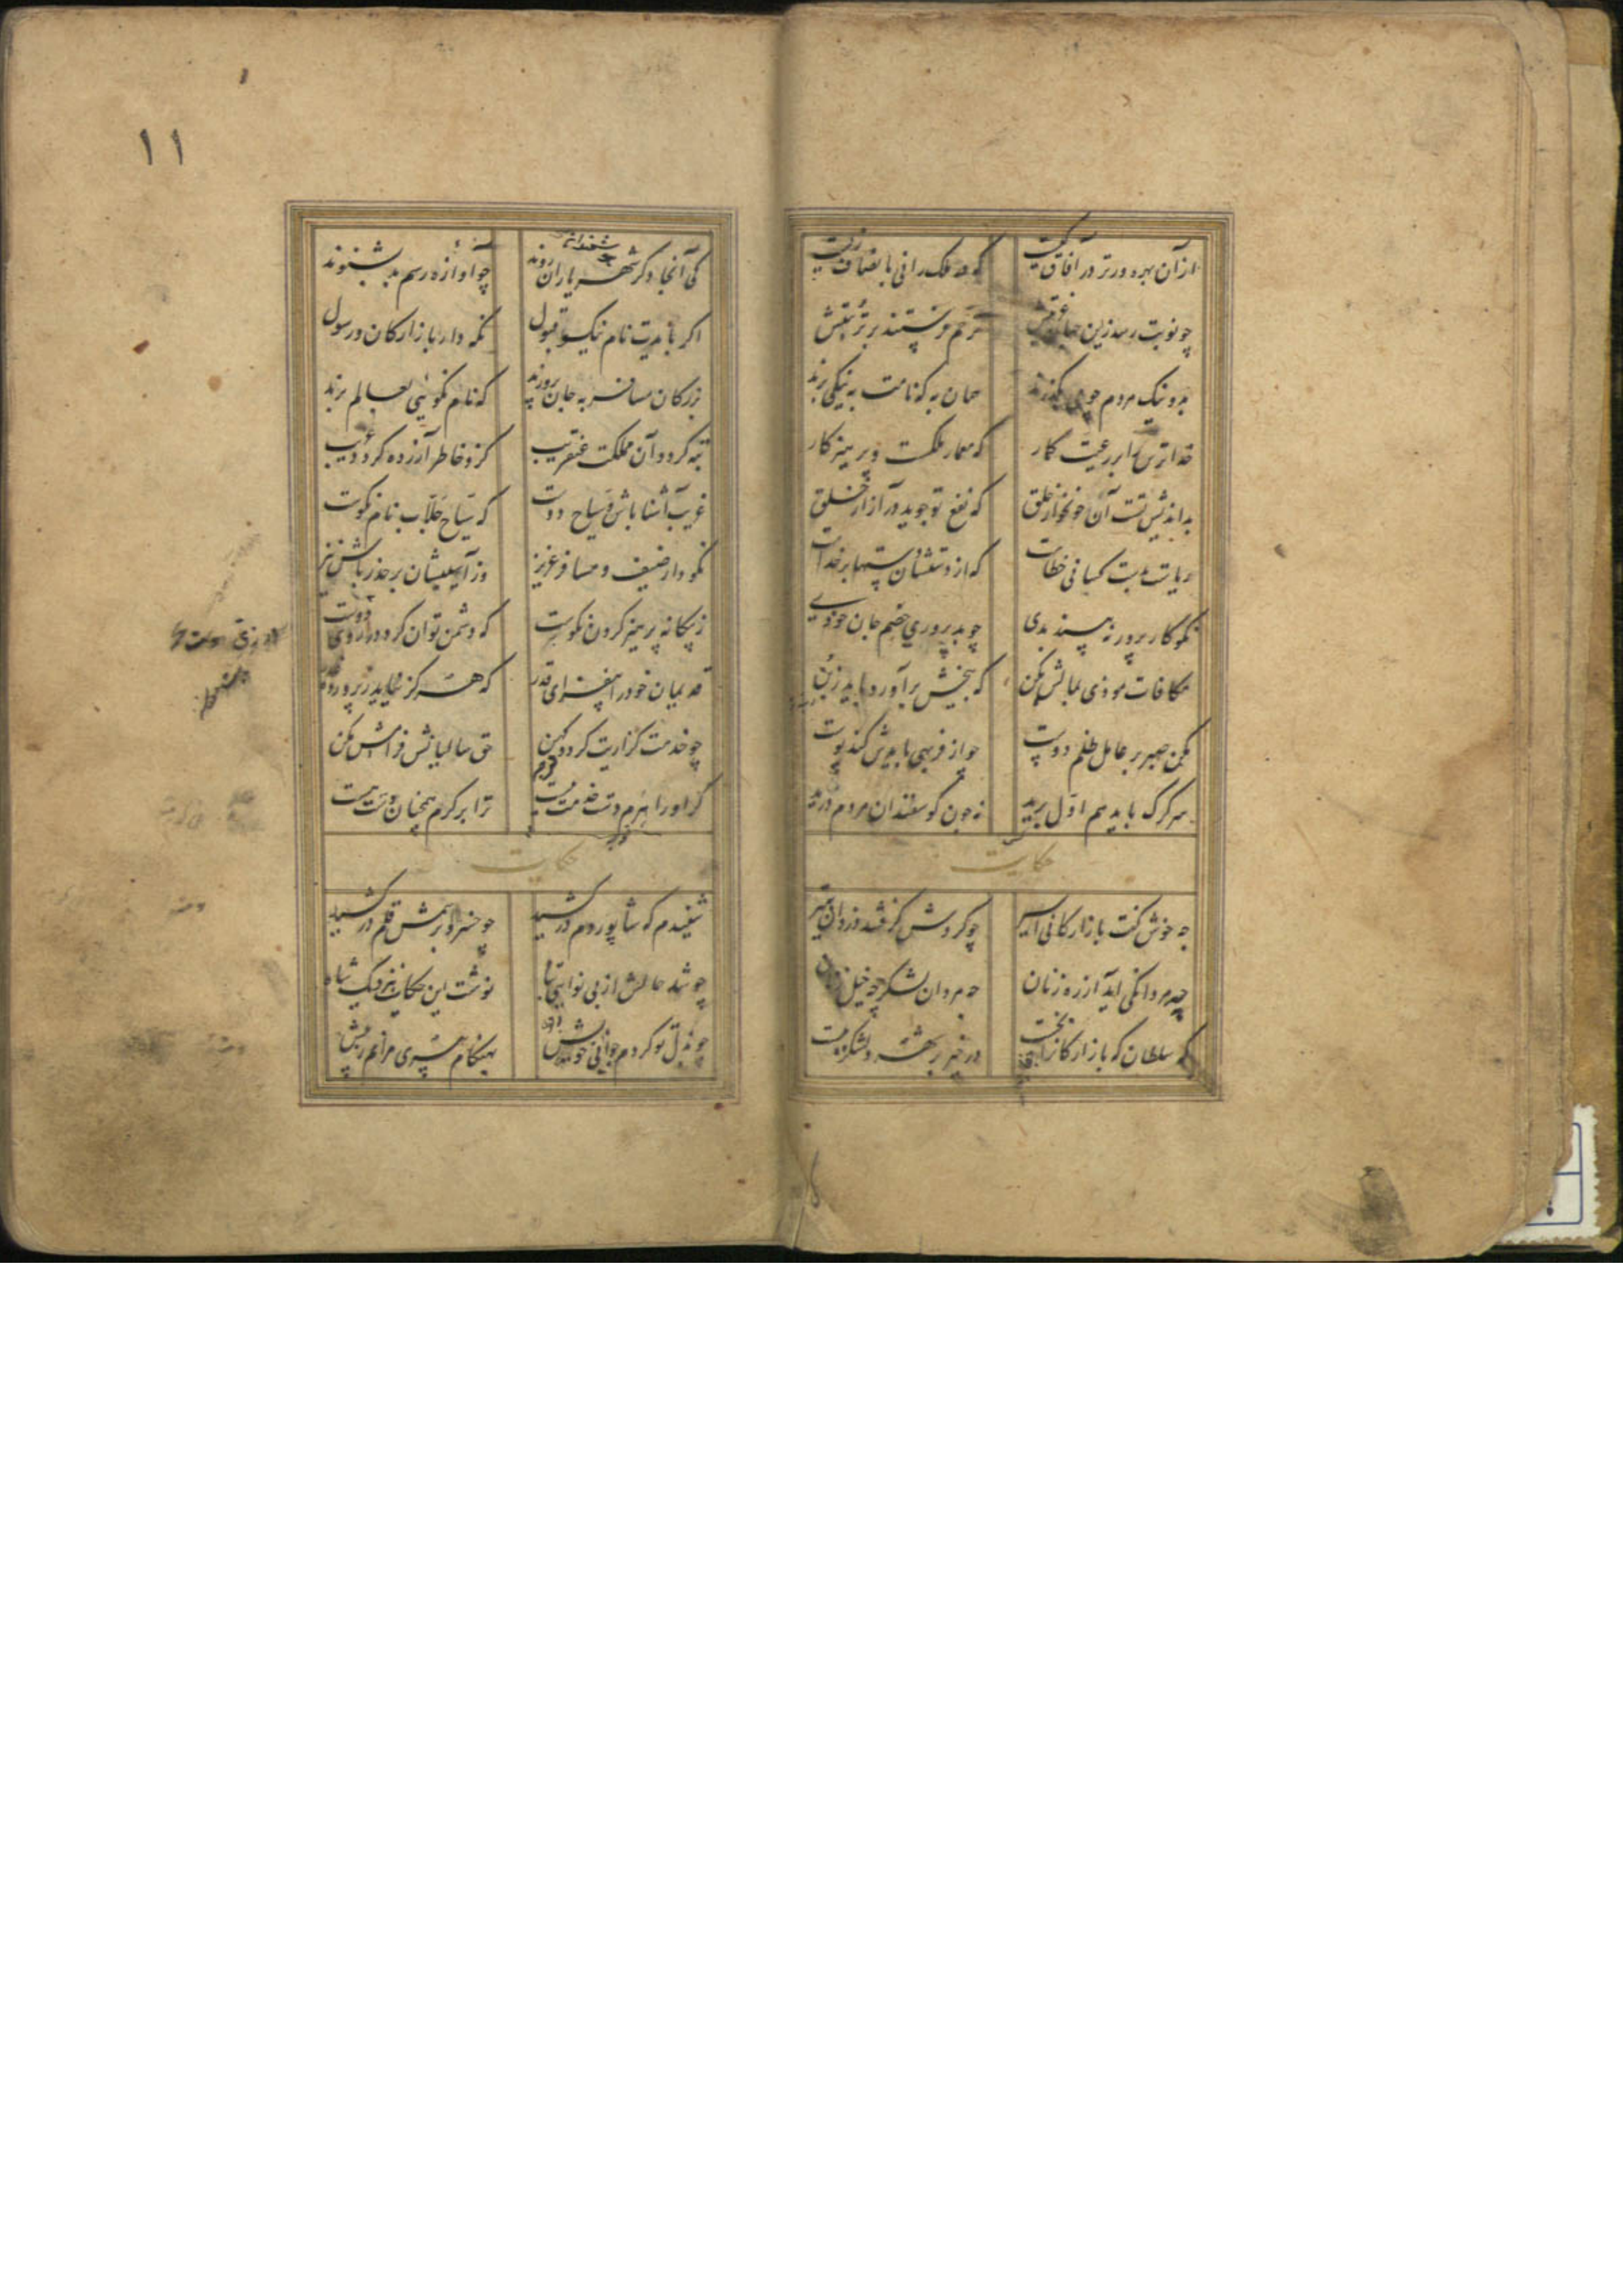 از آن بهره ورتر در آفاق کیست
که در ملک رانی بانصاف زیست
چو نوبت رسد زین جهان غربتش
ترحم فرستند بر تربتش
بد و نیک مردم چو می بگذرند
همان به که نامت به نیکی برند
خداترس را بر رعیت گمار
که معمار ملکست و پرهیزکار
بداندیش تست آن خونخوار خلق
که نفع تو جوید در آزار خلق
ریاست بدست کسانی خطاست
که از دستشان دستها بر خداست
نکوکار پرور نه بیند بدی
چو بد پروری خصم جان خودی
مکافات موذی بمالش مکن
که بیخش برآورد باید ز بن
مکن صبر بر عامل ظلم دوست
چو از فربهی بایدش کند پوست
سر گرگ باید هم اول برید
نه چون گوسفندان مردم درید
حکایت
چه خوش گفت بازارگانی اسیر
چو گردش گرفتند دزدان بتیر
چو مردانگی آید از ره زنان
چه مردان لشکر چه خیل زنان
که سلطان که بازارگان را بخست
در خیر بر شهر و لشکر ببست
۱۱
کی آنجا دگر شهریاران روند
چو آوازه رسم بد بشنوند
اگر بایدت نام نیکو قبول
نکو دار بازارگان و رسول
بزرگان مسافر به جان پرورند
که نام نکوئی بعالم برند
تبه گردد آن مملکت عنقریب
کزو خاطر آزرده گردد غریب
غریب آشنا باش و سیاح دوست
که سیاح جلاب نام نکوست
نکو دار ضیف و مسافر عزیز
وز آسیبشان بر حذر باش نیز
ز بیگانه پرهیز کردن نکوست
که دشمن توان کرد در زی دوست
قدیمان خود را بیفزای قدر
که هرگز نیاید ز پرورده غدر
چو خدمت گزاریت گردد کهن
حق سالیانش فرامش مکن
گر او را هرم دست خدمت ببست
ترا بر کرم همچنان دست هست
حکایت
شنیدم که شاپور دم در کشید
چو خسرو برسمش قلم در کشید
چو شد حالش از بی نوایی تباه
نوشت این حکایت بنزدیک شاه
چو بذل تو کردم جوانی خویش
بهنگام پیری مرانم ز پیش